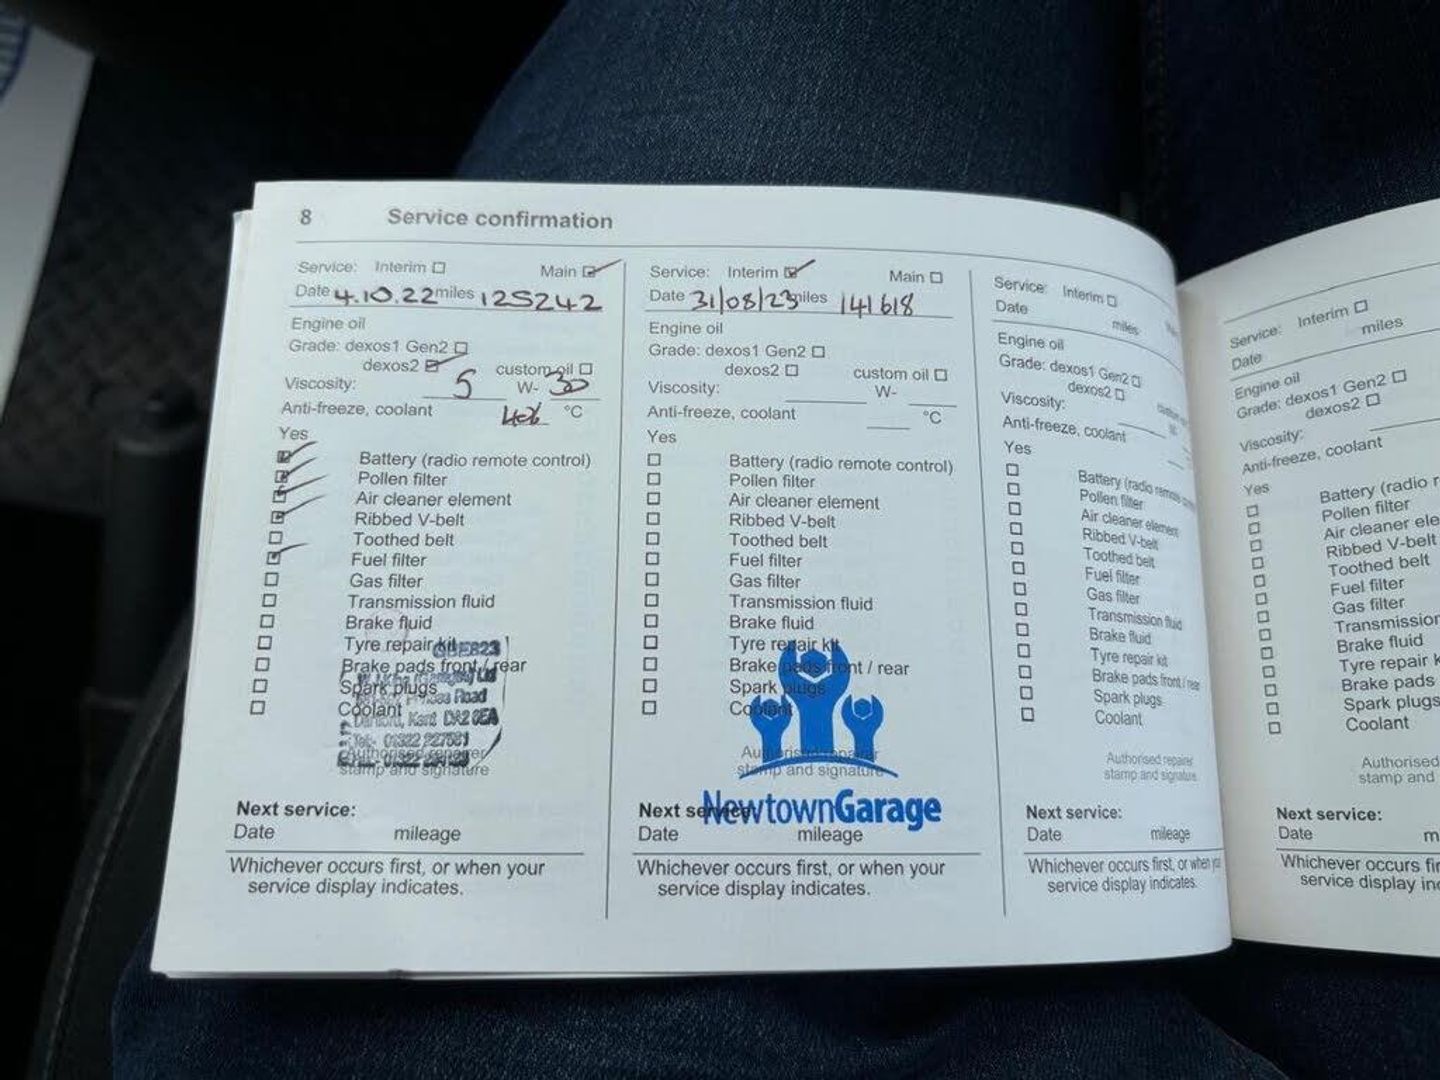 8 Service confirmation
Service: Interim Main
Date 4.10.22 miles 125242
Engine oil
Grade: dexos1 Gen2
dexos2 custom oil
Viscosity: 5 W- 30
Anti-freeze, coolant °C
Yes
Battery (radio remote control)
Pollen filter
Air cleaner element
Ribbed V-belt
Toothed belt
Fuel filter
Gas filter
Transmission fluid
Brake fluid
Tyre repair kit
Brake pads front / rear
Spark plugs
Coolant
Road
Kent DA2
Authorised repairer
stamp and signature
Next service:
Date mileage
Whichever occurs first, or when your
service display indicates.
Service: Interim Main
Date 31/08/23 miles 141618
Engine oil
Grade: dexos1 Gen2
dexos2 custom oil
Viscosity: W-
Anti-freeze, coolant °C
Yes
Battery (radio remote control)
Pollen filter
Air cleaner element
Ribbed V-belt
Toothed belt
Fuel filter
Gas filter
Transmission fluid
Brake fluid
Tyre repair kit
Brake pads front / rear
Spark plugs
Coolant
Authorised repairer
stamp and signature
NewtownGarage
Next service:
Date mileage
Whichever occurs first, or when your
service display indicates.
Service: Interim
Date miles
Engine oil
Grade: dexos1 Gen2
dexos2
Viscosity:
Anti-freeze, coolant
Yes
Battery (radio remote
Pollen filter
Air cleaner element
Ribbed V-belt
Toothed belt
Fuel filter
Gas filter
Transmission fluid
Brake fluid
Tyre repair kit
Brake pads front / rear
Spark plugs
Coolant
Authorised repairer
stamp and signature
Next service:
Date mileage
Whichever occurs first, or when
service display indicates.
Service: Interim
Date miles
Engine oil
Grade: dexos1 Gen2
dexos2
Viscosity:
Anti-freeze, coolant
Yes
Battery (radio r
Pollen filter
Air cleaner ele
Ribbed V-belt
Toothed belt
Fuel filter
Gas filter
Transmission
Brake fluid
Tyre repair k
Brake pads
Spark plugs
Coolant
Authorised
stamp and
Next service:
Date m
Whichever occurs fir
service display in